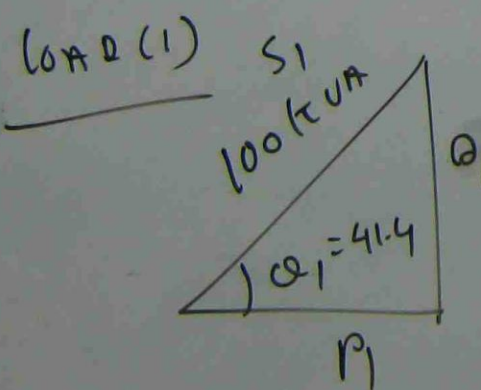 LOAD (1)
S1
100 KVA
Q
θ1 = 41.4
P1